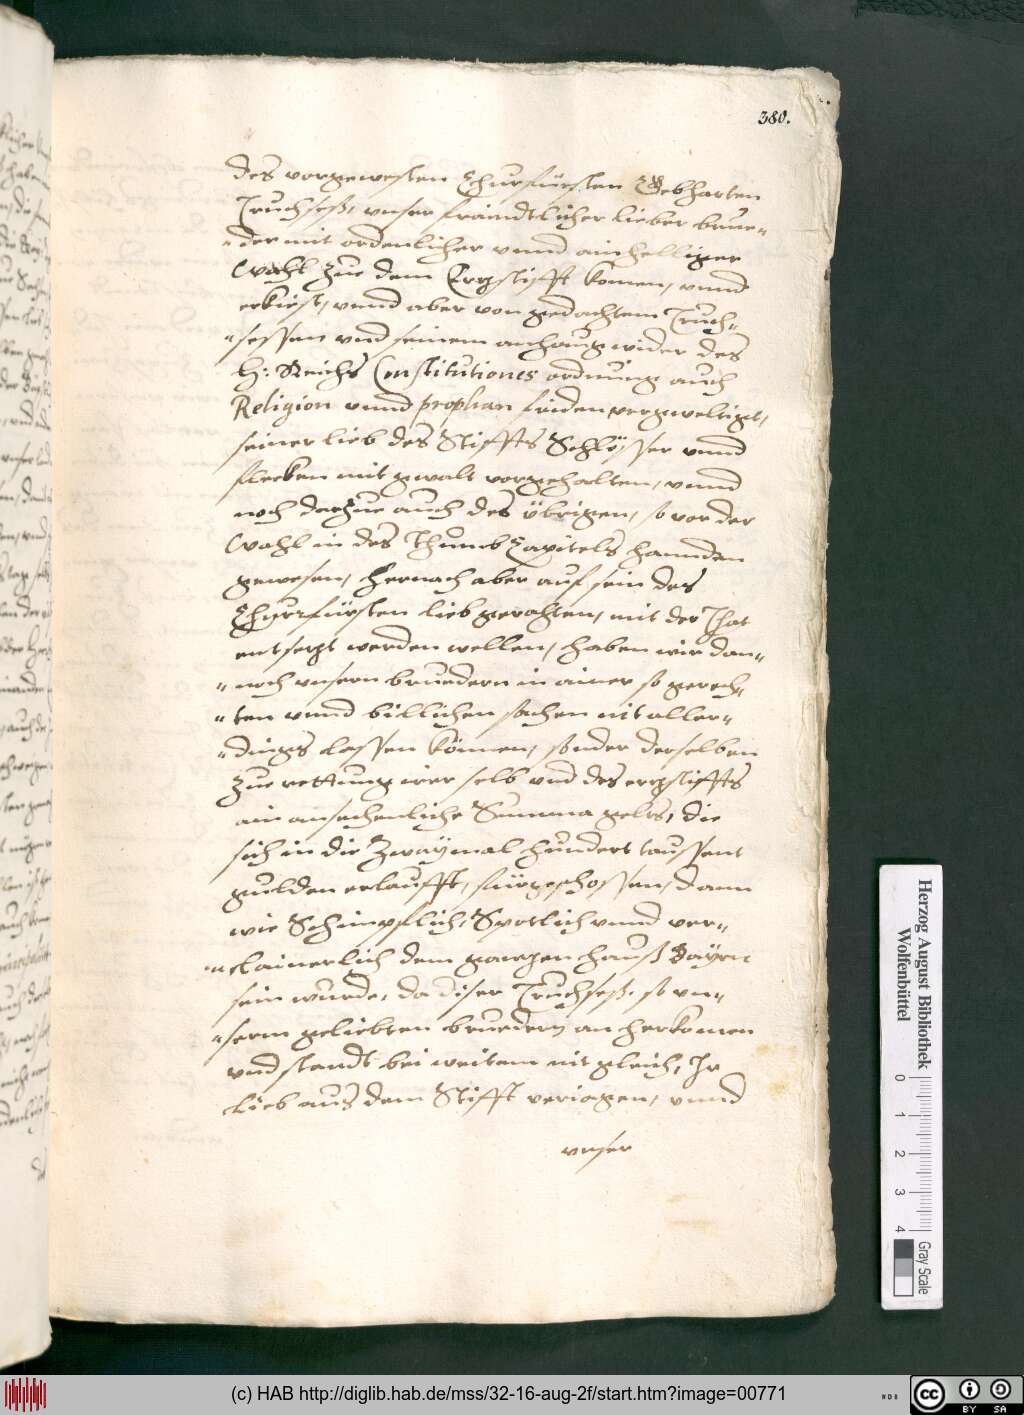 380.
des vorgewesten Churfürsten Gebharten
Truchseß, vnser freindtlicher lieber brue-
der mit ordenlicher vnnd ainhelliger
Wahl zue dem Erzstifft komen, vnnd
erkiest, vnnd aber von gedachtem Truch-
sessen vnd seinem anhang wider des
H: Reichs Constitutiones ordnung auch
Religion vnnd prophan friden vergweltiget,
seiner lieb des Stiffts Schlösser vnnd
flecken mit gwalt vorgehalten, vnnd
noch darzue auch des übrigen, so vor der
Wahl in des Thumb Capitels hannden
gewesen, hernach aber auf sein des
Churfürsten lieb gerathen, mit der That
entsezt werden wellen, haben wir dan-
noch vnsern bruedern in ainer so gerech-
ten vnnd billichen sachen nit aller-
dings lassen können, sonder derselben
zue rettung irer selb vnd des erzstiffts
ain ansechenliche Summa gelts, die
sich in die Zwaymal hundert taussent
gulden erlaufft, fürgeschossen, dann
wie Schimpflich, Spotlich vnnd ver-
clainerlich dem ganzen hauß Bayrn
sein wurde, da diser Truchseß, so vn-
serm geliebten bruedern an herkomen
vnd standt bei weitem nit gleich, Ir
Lieb aus dem Stifft veriagen, vnnd
vnser
Herzog August Bibliothek
Wolfenbüttel
0 1 2 3 4
Gray Scale
(c) HAB http://diglib.hab.de/mss/32-16-aug-2f/start.htm?image=00771
cc BY SA